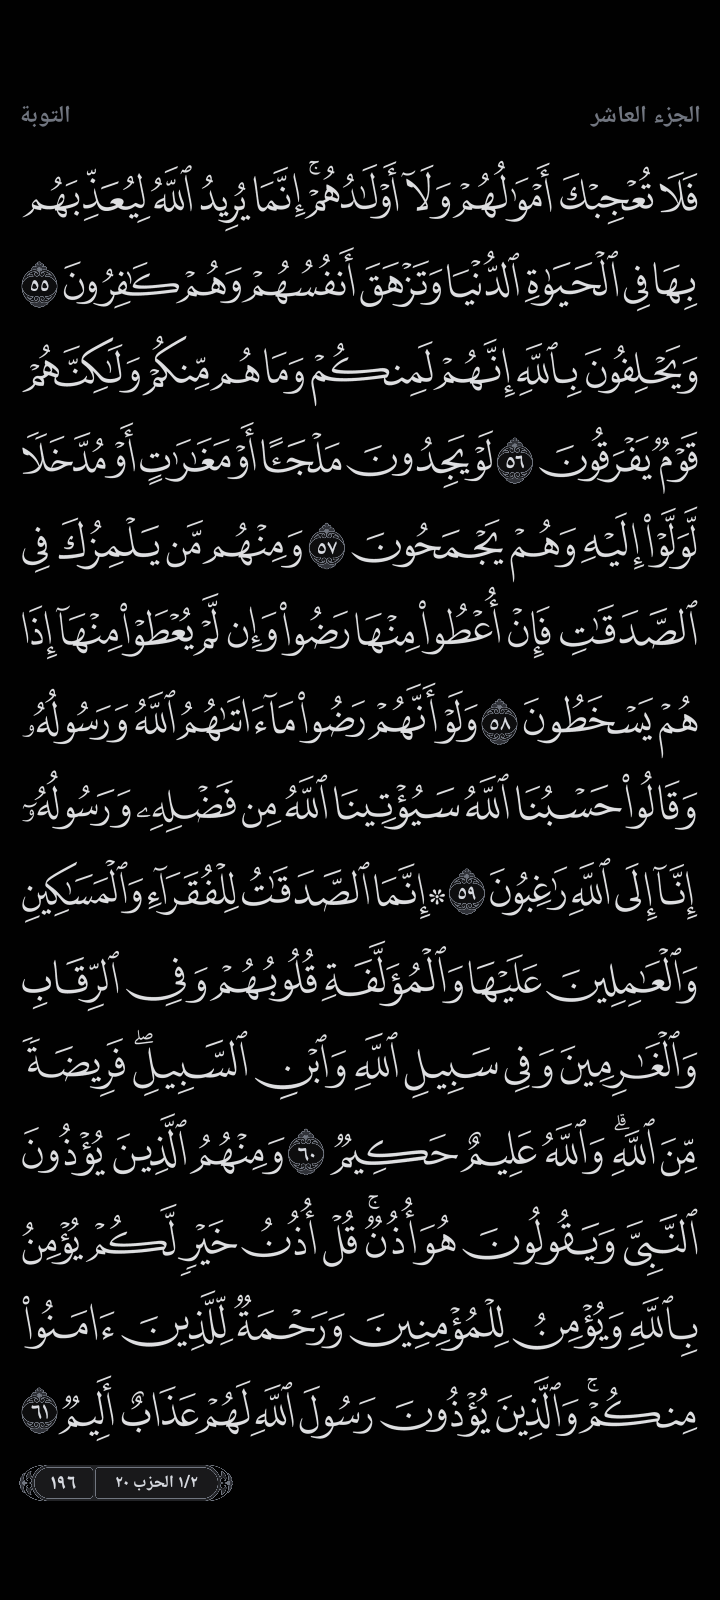 الجزء العاشر
التوبة
فَلَا تُعْجِبْكَ أَمْوَٰلُهُمْ وَلَآ أَوْلَـٰدُهُمْ ۚ إِنَّمَا يُرِيدُ ٱللَّهُ لِيُعَذِّبَهُم
بِهَا فِى ٱلْحَيَوٰةِ ٱلدُّنْيَا وَتَزْهَقَ أَنفُسُهُمْ وَهُمْ كَـٰفِرُونَ ٥٥
وَيَحْلِفُونَ بِٱللَّهِ إِنَّهُمْ لَمِنكُمْ وَمَا هُم مِّنكُمْ وَلَـٰكِنَّهُمْ
قَوْمٌ يَفْرَقُونَ ٥٦ لَوْ يَجِدُونَ مَلْجَـًٔا أَوْ مَغَـٰرَٰتٍ أَوْ مُدَّخَلًا
لَّوَلَّوْا۟ إِلَيْهِ وَهُمْ يَجْمَحُونَ ٥٧ وَمِنْهُم مَّن يَلْمِزُكَ فِى
ٱلصَّدَقَـٰتِ فَإِنْ أُعْطُوا۟ مِنْهَا رَضُوا۟ وَإِن لَّمْ يُعْطَوْا۟ مِنْهَآ إِذَا
هُمْ يَسْخَطُونَ ٥٨ وَلَوْ أَنَّهُمْ رَضُوا۟ مَآ ءَاتَىٰهُمُ ٱللَّهُ وَرَسُولُهُۥ
وَقَالُوا۟ حَسْبُنَا ٱللَّهُ سَيُؤْتِينَا ٱللَّهُ مِن فَضْلِهِۦ وَرَسُولُهُۥٓ
إِنَّآ إِلَى ٱللَّهِ رَٰغِبُونَ ٥٩ ۞ إِنَّمَا ٱلصَّدَقَـٰتُ لِلْفُقَرَآءِ وَٱلْمَسَـٰكِينِ
وَٱلْعَـٰمِلِينَ عَلَيْهَا وَٱلْمُؤَلَّفَةِ قُلُوبُهُمْ وَفِى ٱلرِّقَابِ
وَٱلْغَـٰرِمِينَ وَفِى سَبِيلِ ٱللَّهِ وَٱبْنِ ٱلسَّبِيلِ ۖ فَرِيضَةً
مِّنَ ٱللَّهِ ۗ وَٱللَّهُ عَلِيمٌ حَكِيمٌ ٦٠ وَمِنْهُمُ ٱلَّذِينَ يُؤْذُونَ
ٱلنَّبِىَّ وَيَقُولُونَ هُوَ أُذُنٌ ۚ قُلْ أُذُنُ خَيْرٍ لَّكُمْ يُؤْمِنُ
بِٱللَّهِ وَيُؤْمِنُ لِلْمُؤْمِنِينَ وَرَحْمَةٌ لِّلَّذِينَ ءَامَنُوا۟
مِنكُمْ ۚ وَٱلَّذِينَ يُؤْذُونَ رَسُولَ ٱللَّهِ لَهُمْ عَذَابٌ أَلِيمٌ ٦١
١/٢ الحزب ٢٠
١٩٦